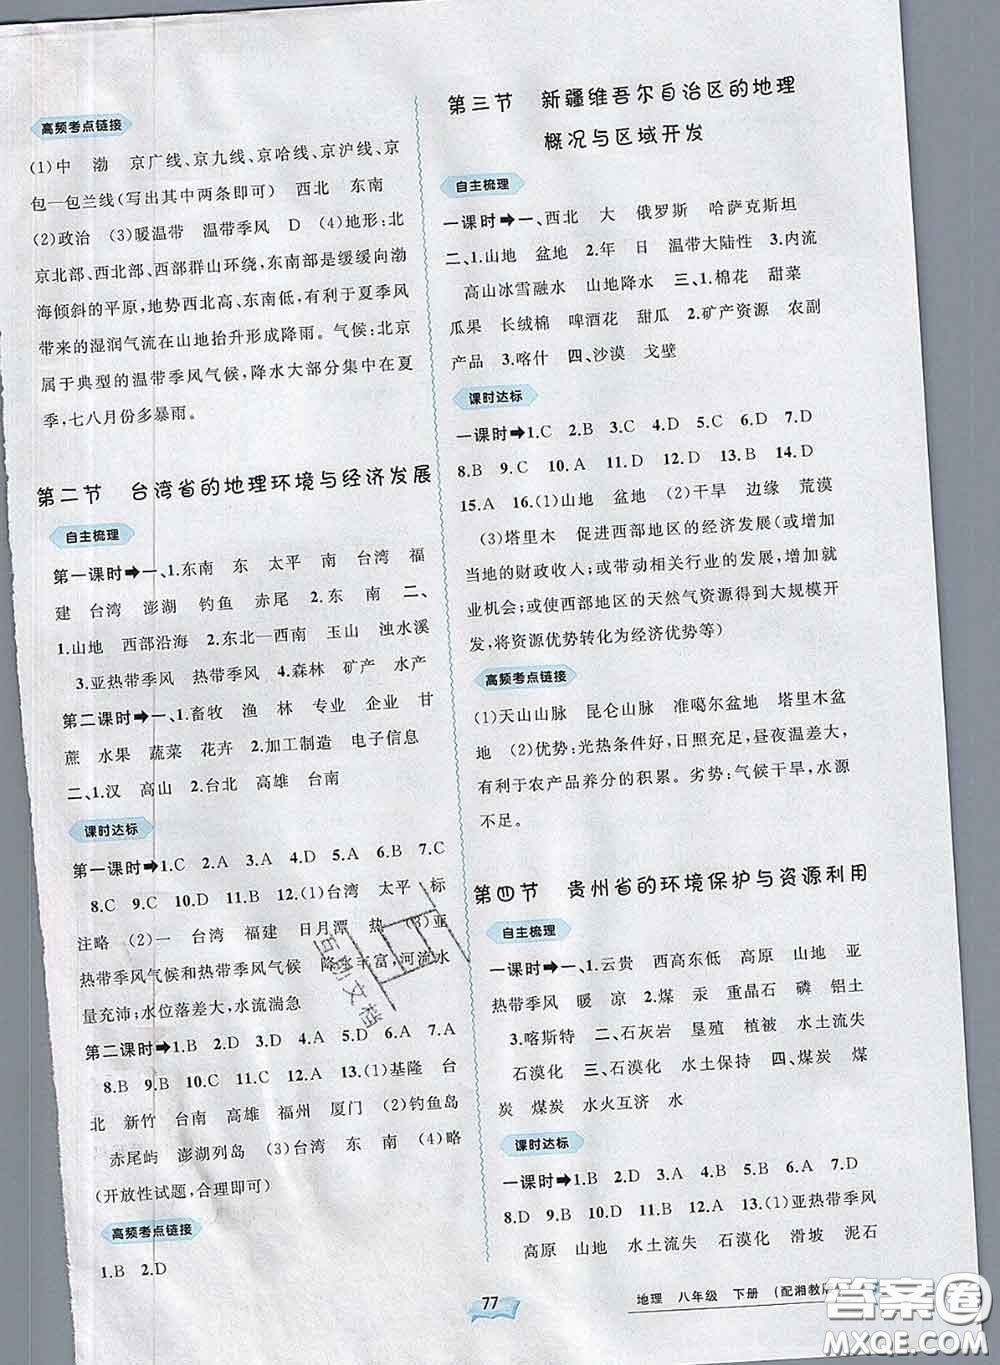 高频考点链接
(1)中　渤　京广线、京九线、京哈线、京沪线、京
包—包兰线(写出其中两条即可)　西北　东南
(2)政治　(3)暖温带　温带季风　D　(4)地形:北
京北部、西北部、西部群山环绕,东南部是缓缓向渤
海倾斜的平原,地势西北高、东南低,有利于夏季风
带来的湿润气流在山地抬升形成降雨。气候:北京
属于典型的温带季风气候,降水大部分集中在夏
季,七八月份多暴雨。
第二节　台湾省的地理环境与经济发展
自主梳理
第一课时➔一、1.东南　东　太平　南　台湾　福
建　台湾　澎湖　钓鱼　赤尾　2.东　南　二、
1.山地　西部沿海　2.东北—西南　玉山　浊水溪
3.亚热带季风　热带季风　4.森林　矿产　水产
第二课时➔一、1.畜牧　渔　林　专业　企业　甘
蔗　水果　蔬菜　花卉　2.加工制造　电子信息
二、1.汉　高山　2.台北　高雄　台南
课时达标
第一课时➔1.C　2.A　3.A　4.D　5.A　6.B　7.C
8.C　9.C　10.A　11.D　12.(1)台湾　太平　标
注略　(2)一　台湾　福建　日月潭　热　(3)亚
热带季风气候和热带季风气候　降水丰富,河流水
量充沛;水位落差大,水流湍急
第二课时➔1.B　2.D　3.D　4.D　5.D　6.A　7.A
8.B　9.B　10.C　11.B　12.A　13.(1)基隆　台
北　新竹　台南　高雄　福州　厦门　(2)钓鱼岛
赤尾屿　澎湖列岛　(3)台湾　东　南　(4)略
(开放性试题,合理即可)
高频考点链接
1.B　2.D
第三节　新疆维吾尔自治区的地理
概况与区域开发
自主梳理
一课时➔一、西北　大　俄罗斯　哈萨克斯坦
二、1.山地　盆地　2.年　日　温带大陆性　3.内流
高山冰雪融水　山地降水　三、1.棉花　甜菜
瓜果　长绒棉　啤酒花　甜瓜　2.矿产资源　农副
产品　3.喀什　四、沙漠　戈壁
课时达标
一课时➔1.C　2.B　3.C　4.D　5.C　6.D　7.D
8.B　9.C　10.A　11.D　12.D　13.B　14.D
15.A　16.(1)山地　盆地　(2)干旱　边缘　荒漠
(3)塔里木　促进西部地区的经济发展(或增加
当地的财政收入;或带动相关行业的发展,增加就
业机会;或使西部地区的天然气资源得到大规模开
发,将资源优势转化为经济优势等)
高频考点链接
(1)天山山脉　昆仑山脉　准噶尔盆地　塔里木盆
地　(2)优势:光热条件好,日照充足,昼夜温差大,
有利于农产品养分的积累。劣势:气候干旱,水源
不足。
第四节　贵州省的环境保护与资源利用
自主梳理
一课时➔一、1.云贵　西高东低　高原　山地　亚
热带季风　暖　凉　2.煤　汞　重晶石　磷　铝土
3.喀斯特　二、石灰岩　垦殖　植被　水土流失
石漠化　三、石漠化　水土保持　四、煤炭　煤
炭　煤炭　水火互济　水
课时达标
一课时➔1.B　2.D　3.A　4.B　5.A　6.A　7.D
8.D　9.B　10.D　11.D　12.A　13.(1)亚热带季风
高原　山地　水土流失　石漠化　滑坡　泥石
77
地理　八年级　下册　(配湘教版
互动文档
答案圈
MXQE.COM